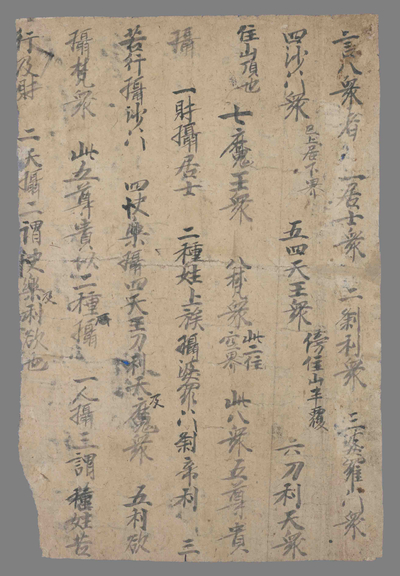 言八衆者 一居士衆 二刹利衆 三婆羅門衆
四沙門衆 已上居下界 五四天王衆 傍住山半腹 六刀利天衆
住山頂也 七魔王衆 八梵衆 此二住空界 此八衆五尊貴
攝 一財攝居士 二種姓上族攝婆羅門刹帝利 三
苦行攝沙門 四快樂攝四天王刀利天及魔衆 五利欲
攝梵衆 此五尊貴以二種攝 一人攝三謂種姓苦
行及財 二天攝二謂快樂及利欲也